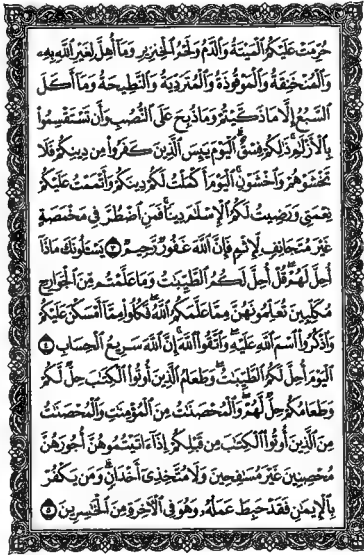 حُرِّمَتْ عَلَيْكُمُ ٱلْمَيْتَةُ وَٱلدَّمُ وَلَحْمُ ٱلْخِنزِيرِ وَمَآ أُهِلَّ لِغَيْرِ ٱللَّهِ بِهِۦ
وَٱلْمُنْخَنِقَةُ وَٱلْمَوْقُوذَةُ وَٱلْمُتَرَدِّيَةُ وَٱلنَّطِيحَةُ وَمَآ أَكَلَ
ٱلسَّبُعُ إِلَّا مَا ذَكَّيْتُمْ وَمَا ذُبِحَ عَلَى ٱلنُّصُبِ وَأَن تَسْتَقْسِمُوا۟
بِٱلْأَزْلَٰمِ ذَٰلِكُمْ فِسْقٌ ٱلْيَوْمَ يَئِسَ ٱلَّذِينَ كَفَرُوا۟ مِن دِينِكُمْ فَلَا
تَخْشَوْهُمْ وَٱخْشَوْنِ ٱلْيَوْمَ أَكْمَلْتُ لَكُمْ دِينَكُمْ وَأَتْمَمْتُ عَلَيْكُمْ
نِعْمَتِى وَرَضِيتُ لَكُمُ ٱلْإِسْلَٰمَ دِينًا فَمَنِ ٱضْطُرَّ فِى مَخْمَصَةٍ
غَيْرَ مُتَجَانِفٍ لِّإِثْمٍ فَإِنَّ ٱللَّهَ غَفُورٌ رَّحِيمٌ ٣ يَسْـَٔلُونَكَ مَاذَآ
أُحِلَّ لَهُمْ قُلْ أُحِلَّ لَكُمُ ٱلطَّيِّبَٰتُ وَمَا عَلَّمْتُم مِّنَ ٱلْجَوَارِحِ
مُكَلِّبِينَ تُعَلِّمُونَهُنَّ مِمَّا عَلَّمَكُمُ ٱللَّهُ فَكُلُوا۟ مِمَّآ أَمْسَكْنَ عَلَيْكُمْ
وَٱذْكُرُوا۟ ٱسْمَ ٱللَّهِ عَلَيْهِ وَٱتَّقُوا۟ ٱللَّهَ إِنَّ ٱللَّهَ سَرِيعُ ٱلْحِسَابِ ٤
ٱلْيَوْمَ أُحِلَّ لَكُمُ ٱلطَّيِّبَٰتُ وَطَعَامُ ٱلَّذِينَ أُوتُوا۟ ٱلْكِتَٰبَ حِلٌّ لَّكُمْ
وَطَعَامُكُمْ حِلٌّ لَّهُمْ وَٱلْمُحْصَنَٰتُ مِنَ ٱلْمُؤْمِنَٰتِ وَٱلْمُحْصَنَٰتُ
مِنَ ٱلَّذِينَ أُوتُوا۟ ٱلْكِتَٰبَ مِن قَبْلِكُمْ إِذَآ ءَاتَيْتُمُوهُنَّ أُجُورَهُنَّ
مُحْصِنِينَ غَيْرَ مُسَٰفِحِينَ وَلَا مُتَّخِذِىٓ أَخْدَانٍ وَمَن يَكْفُرْ
بِٱلْإِيمَٰنِ فَقَدْ حَبِطَ عَمَلُهُۥ وَهُوَ فِى ٱلْءَاخِرَةِ مِنَ ٱلْخَٰسِرِينَ ٥